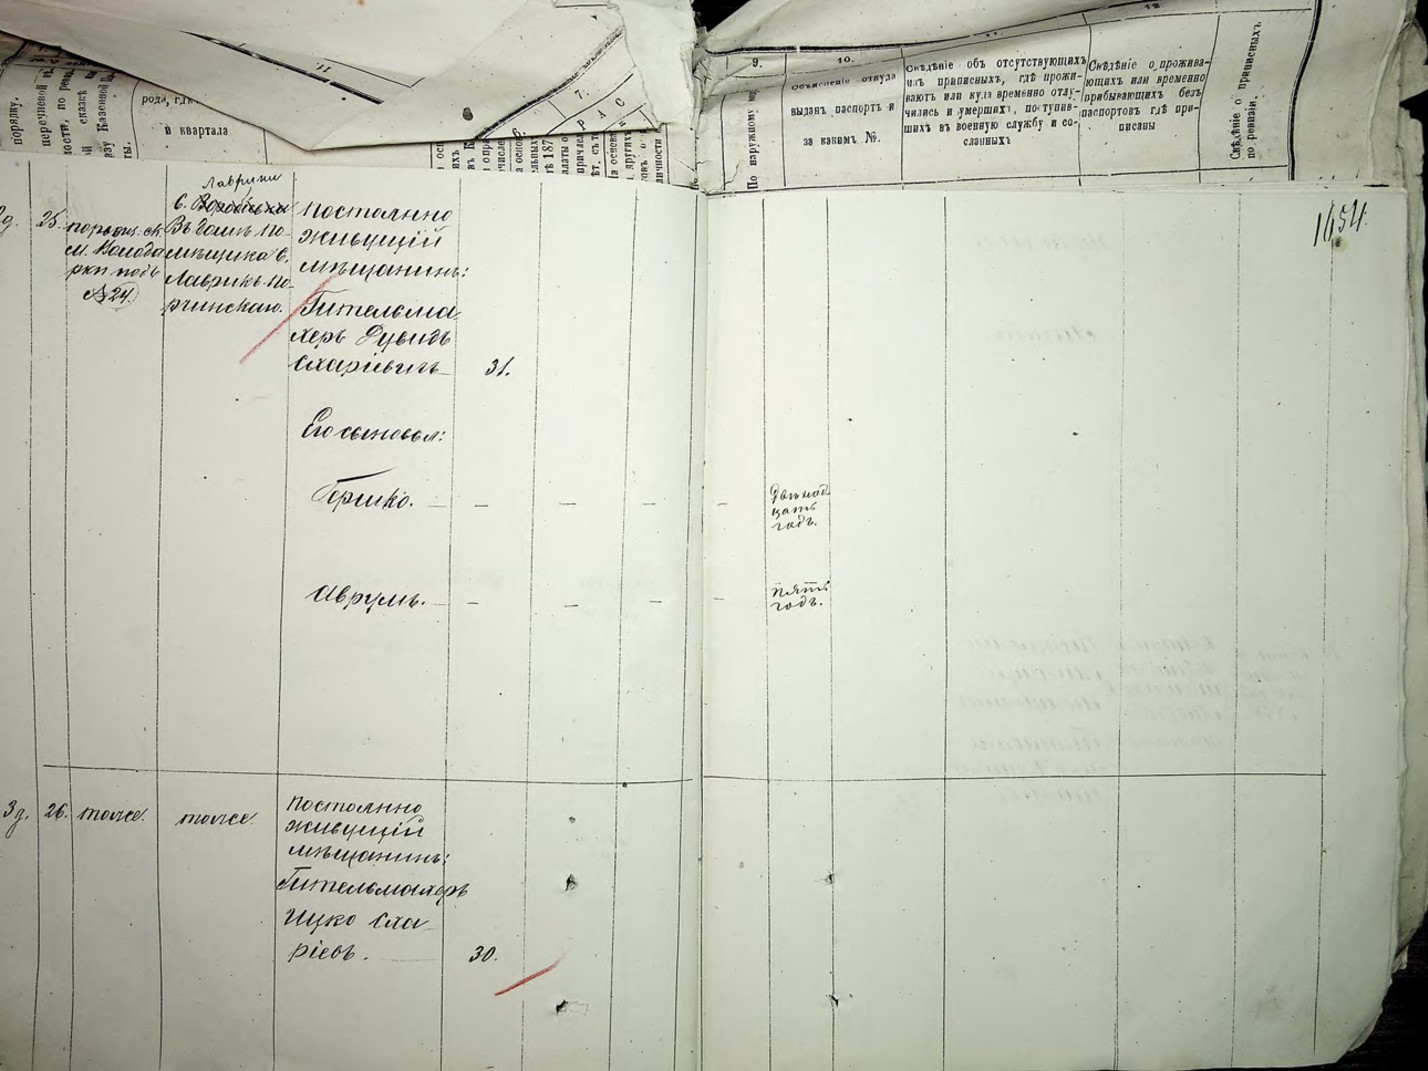 порядку.
рода, гдѣ
и квартала
11
7.
6.
9.
По наружному
10.
Объясненіе откуда
выданъ паспортъ и
за какимъ №.
11
Свѣдѣніе объ отсутствующихъ
изъ приписныхъ, гдѣ прожи-
ваютъ или куда временно отлу-
чились и умершихъ, поступив-
шихъ въ военную службу и со-
сланныхъ
12
Свѣдѣніе о прожива-
ющихъ или временно
прибывающихъ безъ
паспортовъ гдѣ при-
писаны
Свѣдѣніе о приписныхъ
по ревизіи.
1654.
25.
м. Волода
рки подъ
№ 24.
Лаврики
с.
Въ домѣ по-
мѣщика с.
Лаврикъ По-
Постоянно
живущій
мѣщанинъ:
Гительма-
херъ Дувидъ
Схаріевичъ
31.
Его сыновья:
Гершко.
Двѣнад
цать
годъ.
Аврумъ.
пять
годъ.
3д.
26.
тоже.
тоже.
Постоянно
живущій
мѣщанинъ:
Гительмахеръ
Ицко Сха-
ріевъ.
30.